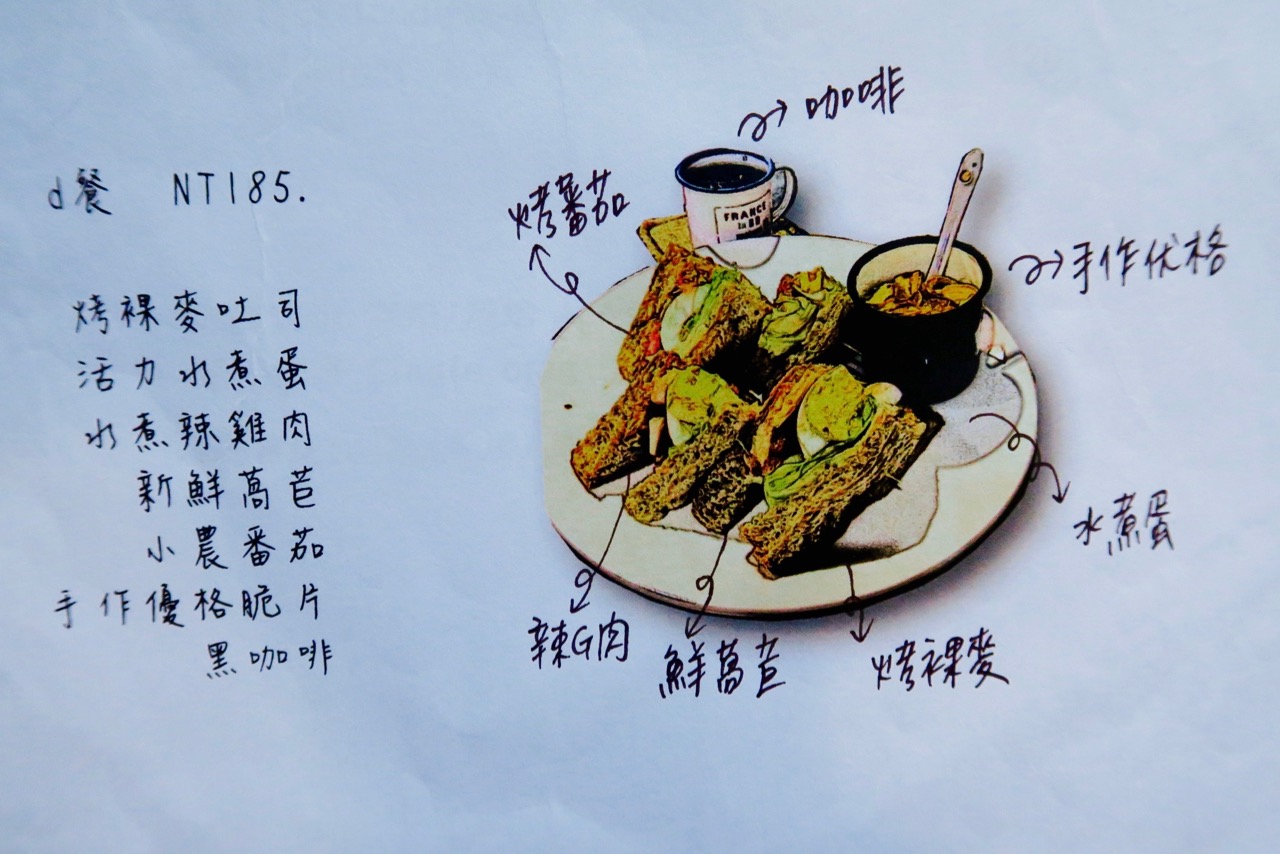 d餐 NT185.
烤裸麥吐司
活力水煮蛋
水煮辣雞肉
新鮮萵苣
小農番茄
手作優格脆片
黑咖啡
咖啡
烤蕃茄
FRANCE
手作优格
水煮蛋
辣G肉
鮮萵苣
烤裸麥